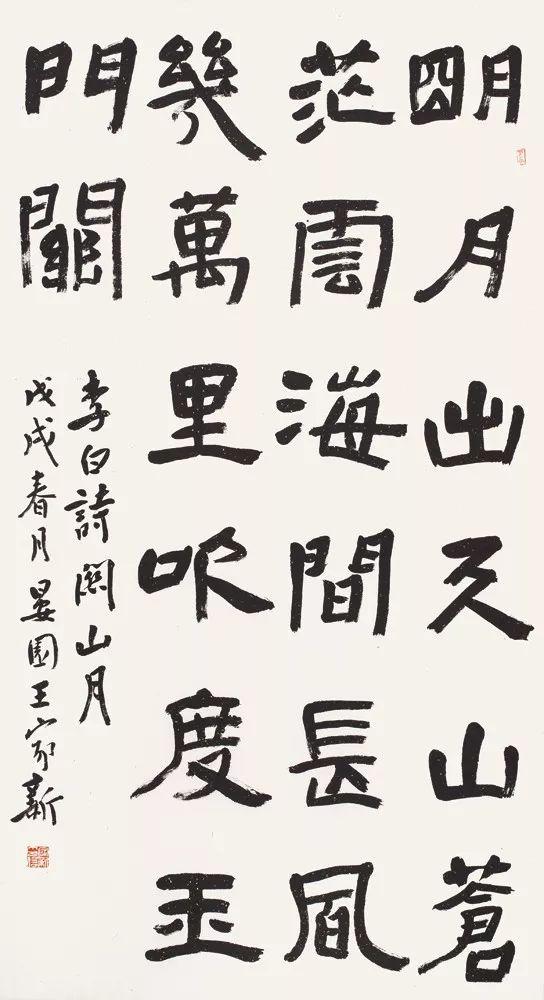 朙月出天山蒼
茫雲海間長風
幾萬里吹度玉
門關
李白詩關山月
戊戌春月晏園王家新